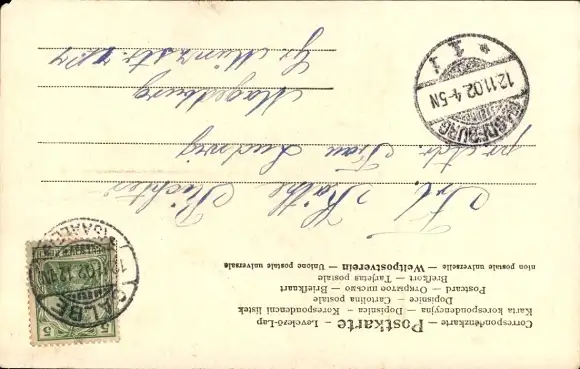 Correspondenzkarte — Levelező-Lap
Postkarte
Karta korespondencyjna — Dopisnica — Korespondenční lístek
Dopisnice — Cartolina postale
Postcard — Открытое письмо — Briefkaart
Brefkort — Tarjetas postale
nion postale universelle — Weltpostverein — Unione postale universale
Frl. Käthe Richter
pr. Adr. Frau Ludwig
Magdeburg
MAGDEBURG
12.11.02.4-5N
* 1 1
CALBE
(SAALE)
5
5